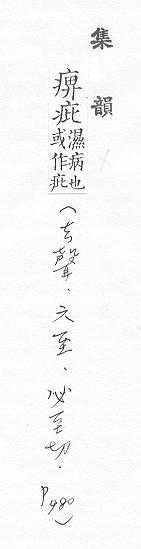 集韻
痹疪濕病也或作疪
(去聲.六至.必至切.P480)